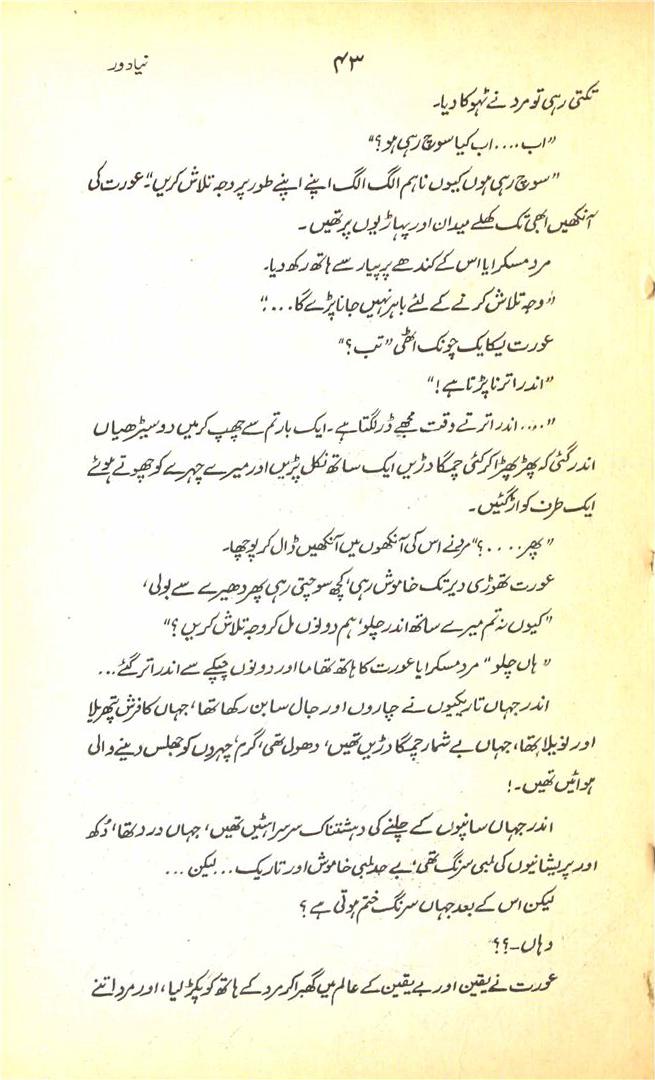 نیا دور
۴۳
تکتی رہی تو مرد نے ٹہوکا دیا۔
"اب .... اب کیا سوچ رہی ہو؟"
"سوچ رہی ہوں کیوں نا ہم الگ الگ اپنے اپنے طور پر وجہ تلاش کریں"۔ عورت کی
آنکھیں ابھی تک کھلے میدان اور پہاڑیوں پر تھیں۔
مرد مسکرایا اس کے کندھے پر پیار سے ہاتھ رکھ دیا۔
"وجہ تلاش کرنے کے لئے باہر نہیں جانا پڑے گا ...."
عورت یکایک چونک اٹھی "تب؟"
"اندر اترنا پڑتا ہے!"
".... اندر اترتے وقت مجھے ڈر لگتا ہے۔ ایک بار تم سے چھپ کر میں دو سیڑھیاں
اندر گئی کہ پھڑپھڑا کر کئی چمگادڑیں ایک ساتھ نکل پڑیں اور میرے چہرے کو چھوتے ہوئے
ایک طرف کو اڑ گئیں۔
"پھر ....؟" مرد نے اس کی آنکھوں میں آنکھیں ڈال کر پوچھا۔
عورت تھوڑی دیر تک خاموش رہی، کچھ سوچتی رہی پھر دھیرے سے بولی،
"کیوں نہ تم میرے ساتھ اندر چلو، ہم دونوں مل کر وجہ تلاش کریں؟"
"ہاں چلو" مرد مسکرایا عورت کا ہاتھ تھاما اور دونوں چپکے سے اندر اتر گئے ...
اندر جہاں تاریکیوں نے چاروں اور جال سا بن رکھا تھا، جہاں کا فرش پتھریلا
اور نوکیلا تھا، جہاں بے شمار چمگادڑیں تھیں، دھول تھی، گرم، چہروں کو جھلس دینے والی
ہوائیں تھیں۔!
اندر جہاں سانپوں کے چلنے کی دہشتناک سرسراہٹیں تھیں، جہاں درد تھا، دُکھ
اور پریشانیوں کی لمبی سرنگ تھی، بے حد لمبی خاموش اور تاریک ... لیکن ...
لیکن اس کے بعد جہاں سرنگ ختم ہوتی ہے؟
وہاں۔؟؟
عورت نے یقین اور بے یقین کے عالم میں گھبرا کر مرد کے ہاتھ کو پکڑ لیا، اور مرد اتنے